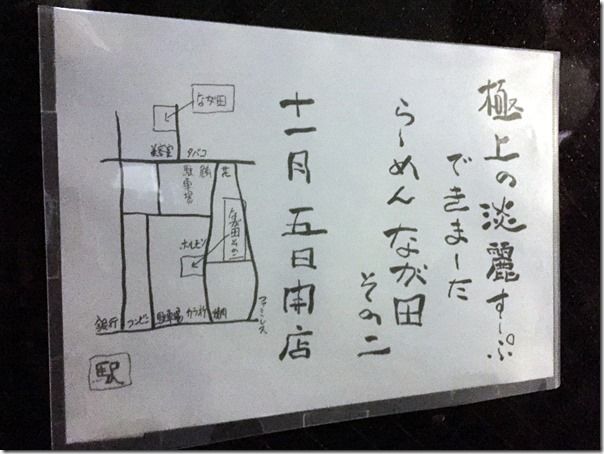 極上の淡麗すーぷ
できまーた
らーめんなが田
その二
十一月五日開店
なが田
美容室
タバコ
駐車場
花
なが田その二
ホルモン
銀行
コンビニ
駐車場
カラオケ
ファミレス
駅